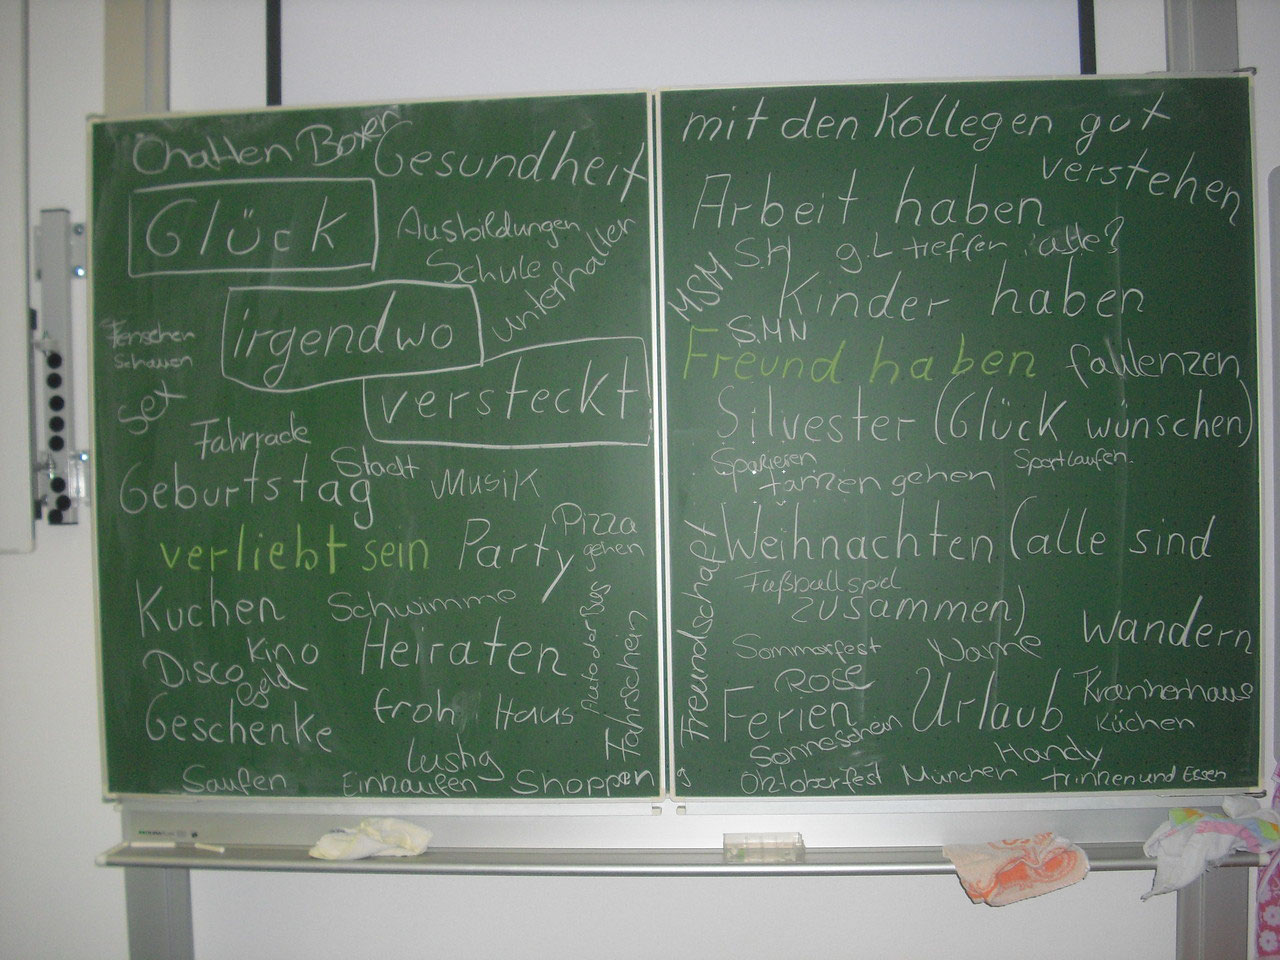 Chatten Boxen
Gesundheit
Glück
Ausbildungen
Schule
unterhalter
irgendwo
versteckt
Fernsehen
Schauen
sex
Fahrrade
Stadt
Geburtstag
Musik
verliebt sein
Party
Pizza
gehen
Kuchen
Schwimme
Kino
Heiraten
Disco
Geld
Geschenke
froh
Haus
Auto der Bus
Fahrschein
lustig
Saufen
Einkaufen
Shoppen
mit den Kollegen gut
verstehen
Arbeit haben
S.H
g.L treffen
MSM
Kinder haben
S.MN
Freund haben
faulenzen
Silvester (Glück wünschen)
Spazieren
Sportlaufen
tanzen gehen
Weihnachten (alle sind
Fußballspel
zusammen)
Freundschaft
Wandern
Sommerfest
Name
Rose
Ferien
Urlaub
Krankenhaus
Küchen
Sonneschen
Handy
Oktoberfest München trinnen und Essen